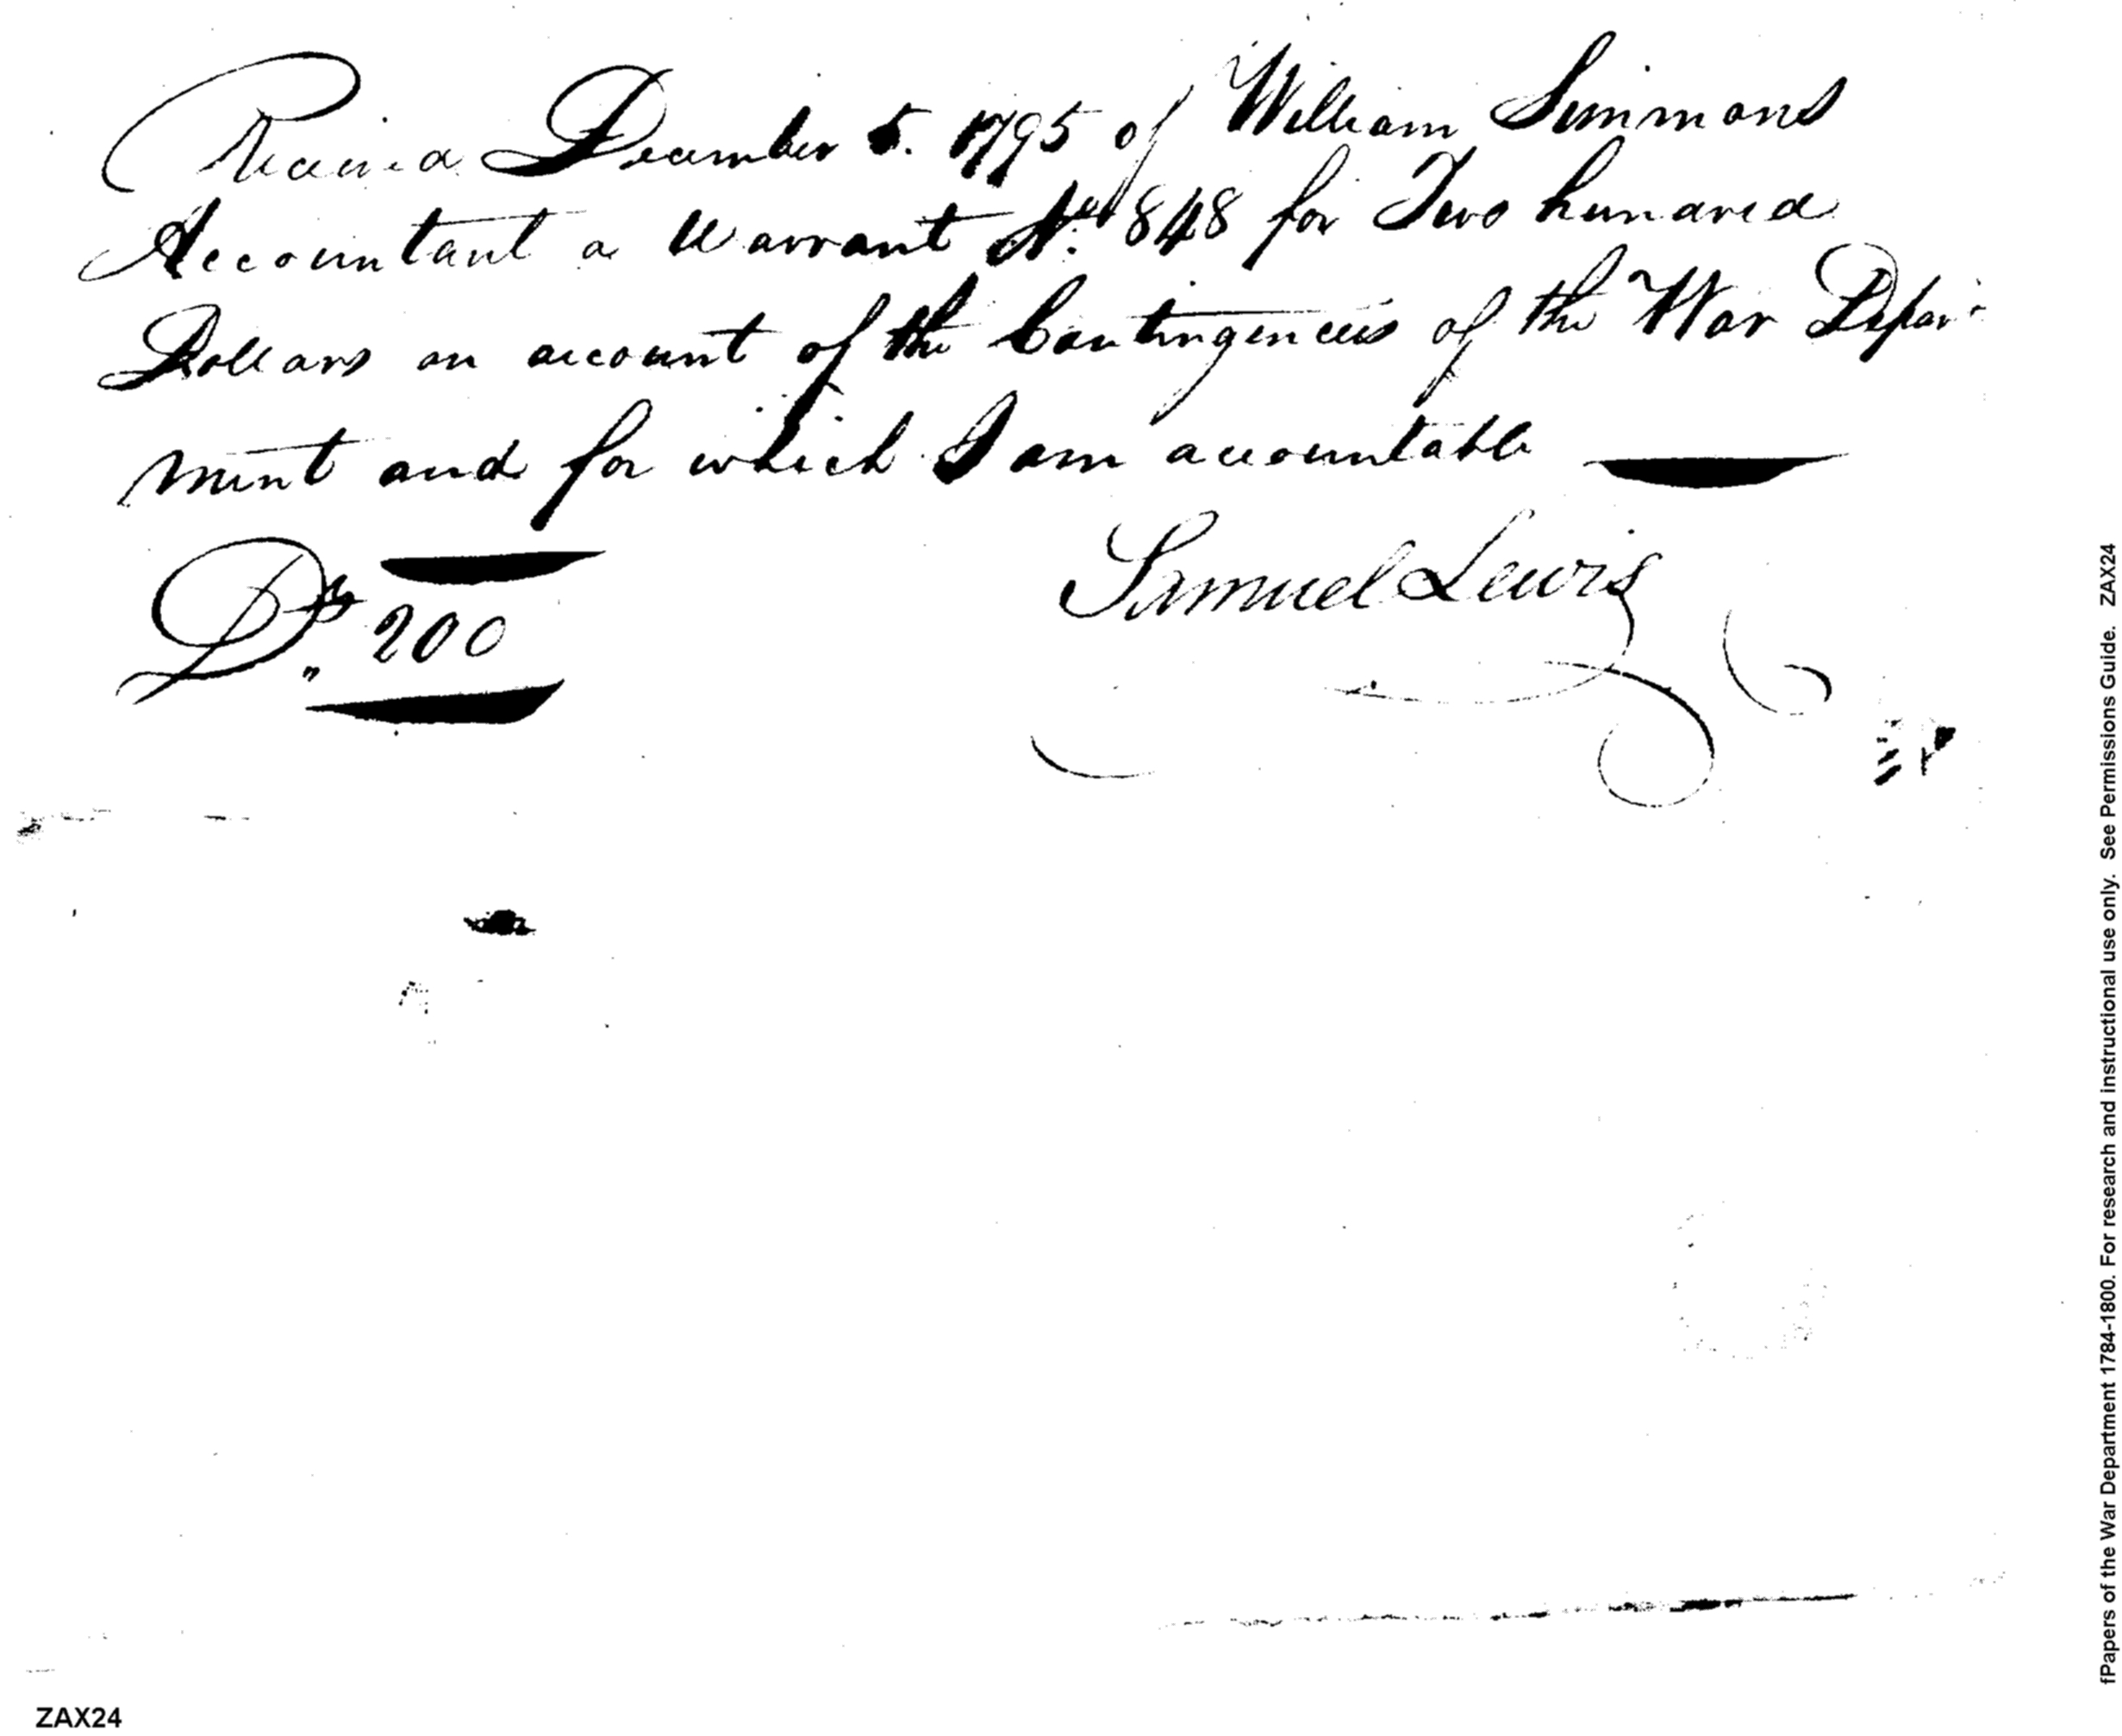 Received December 5. 1795 of William Simmons
Accountant a Warrant No. 848 for Two hundred
Dollars on account of the Contingencies of the War Depart
ment and for which I am accountable
Samuel Lewis
Drs. 200
ZAX24
fPapers of the War Department 1784-1800. For research and instructional use only. See Permissions Guide. ZAX24